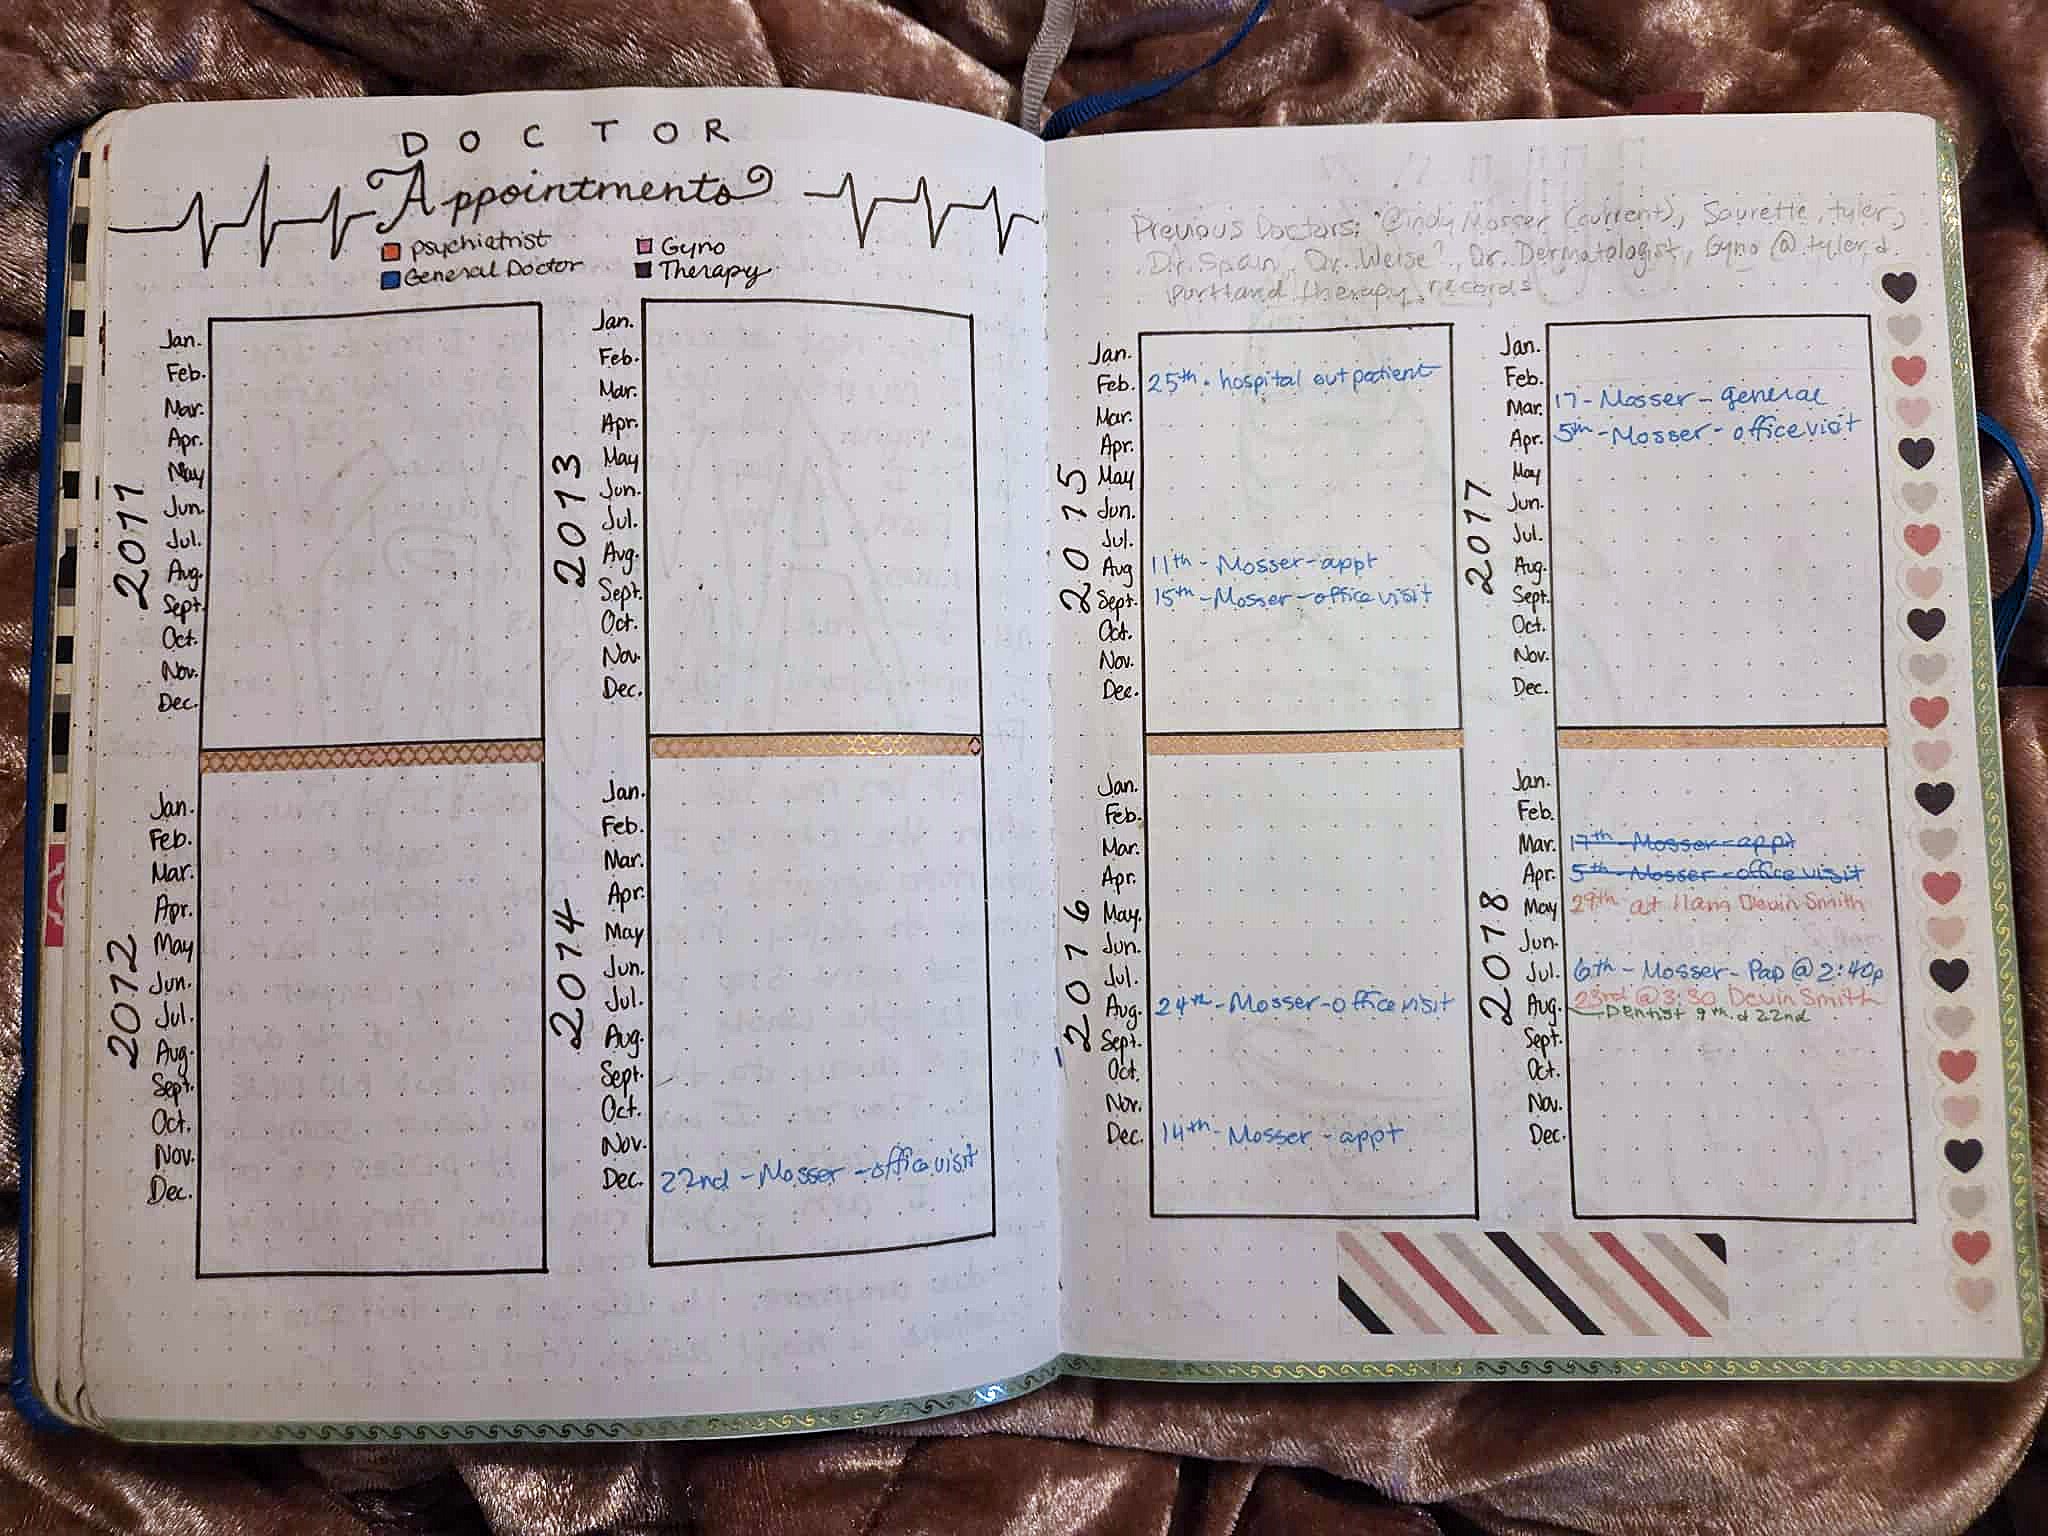 DOCTOR
Appointments
psychiatrist
General Doctor
Gyno
Therapy
2011
Jan.
Feb.
Mar.
Apr.
May
Jun.
Jul.
Aug.
Sept.
Oct.
Nov.
Dec.
2012
Jan.
Feb.
Mar.
Apr.
May
Jun.
Jul.
Aug.
Sept.
Oct.
Nov.
Dec.
2013
Jan.
Feb.
Mar.
Apr.
May
Jun.
Jul.
Aug.
Sept.
Oct.
Nov.
Dec.
2014
Jan.
Feb.
Mar.
Apr.
May
Jun.
Jul.
Aug.
Sept.
Oct.
Nov.
Dec. 22nd - Mosser - office visit
Previous Doctors: Cindy Mosser (current), Saurette, tyler,
Dr. Spain, Dr. Weise?, Dr. Dermatologist, Gyno @ tyler, &
portland therapy records
2015
Jan.
Feb. 25th - hospital outpatient
Mar.
Apr.
May
Jun.
Jul.
Aug 11th - Mosser - appt
Sept. 15th - Mosser - office visit
Oct.
Nov.
Dec.
2016
Jan.
Feb.
Mar.
Apr.
May.
Jun.
Jul.
Aug. 24th - Mosser - office visit
Sept.
Oct.
Nov.
Dec. 14th - Mosser - appt
2017
Jan.
Feb.
Mar. 17 - Mosser - general
Apr. 5th - Mosser - office visit
May
Jun.
Jul.
Aug.
Sept.
Oct.
Nov.
Dec.
2018
Jan.
Feb.
Mar. 17th - Mosser - appt
Apr. 5th - Mosser - office visit
May 29th at 11am Devin Smith
Jun.
Jul. 6th - Mosser - Pap @ 2:40p
Aug. 23rd @ 3:30 Devin Smith
Dentist 9th & 22nd
Sept.
Oct.
Nov.
Dec.